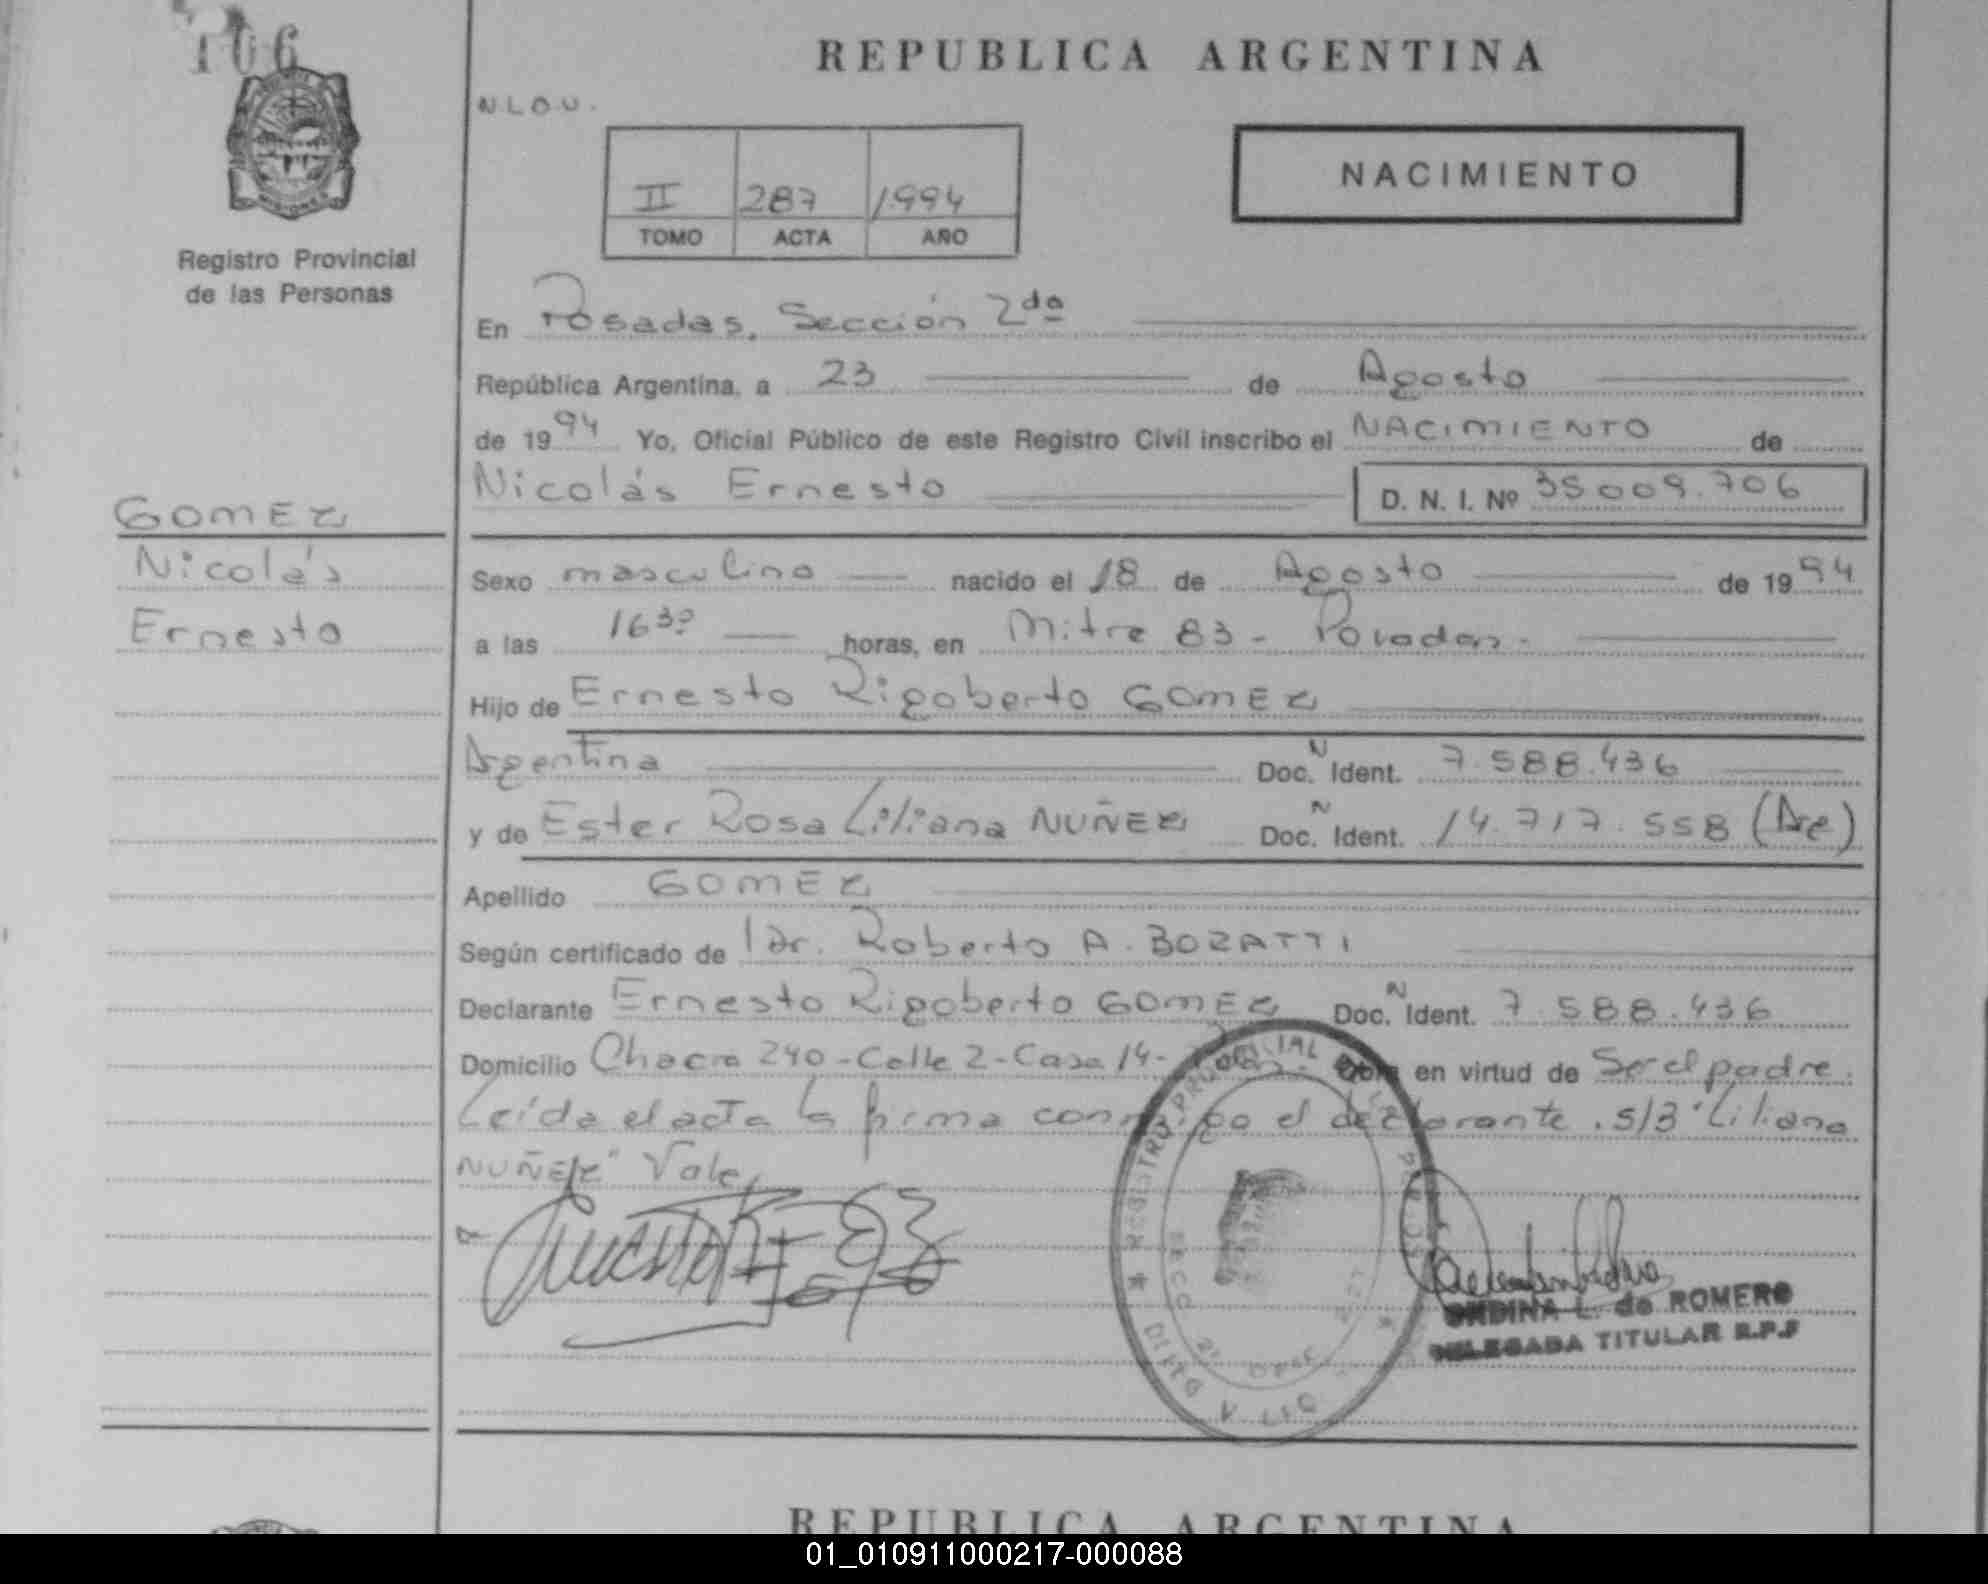 106
REPUBLICA ARGENTINA
N.L.O.U.
NACIMIENTO
II 287 1994
TOMO ACTA AÑO
Registro Provincial
de las Personas
En Posadas, Sección 2da
República Argentina, a 23 de Agosto
de 1994 Yo, Oficial Público de este Registro Civil inscribo el NACIMIENTO de
Nicolás Ernesto D. N. I. Nº 35009.706
GOMEZ
Nicolás
Ernesto
Sexo masculino nacido el 18 de Agosto de 1994
a las 1630 horas, en Mitre 83 - Posadas.
Hijo de Ernesto Rigoberto GOMEZ
Argentina Doc. N Ident. 7.588.436
y de Ester Rosa Liliana NUÑEZ Doc. N Ident. 14.717.558 (Arg)
Apellido GOMEZ
Según certificado de Dr. Roberto A. BOZATTI
Declarante Ernesto Rigoberto GOMEZ Doc. N Ident. 7.588.436
Domicilio Chacra 240 - Calle 2 - Casa 14 - en virtud de Ser el padre.
Leída el acta la firma conmigo el declarante. S/B "Liliana
NUÑEZ" Vale,
REGISTRO PROVINCIAL DE LAS PERSONAS
ORDINA L. de ROMERO
DELEGADA TITULAR R.P.P
REPUBLICA ARGENTINA
01_010911000217-000088